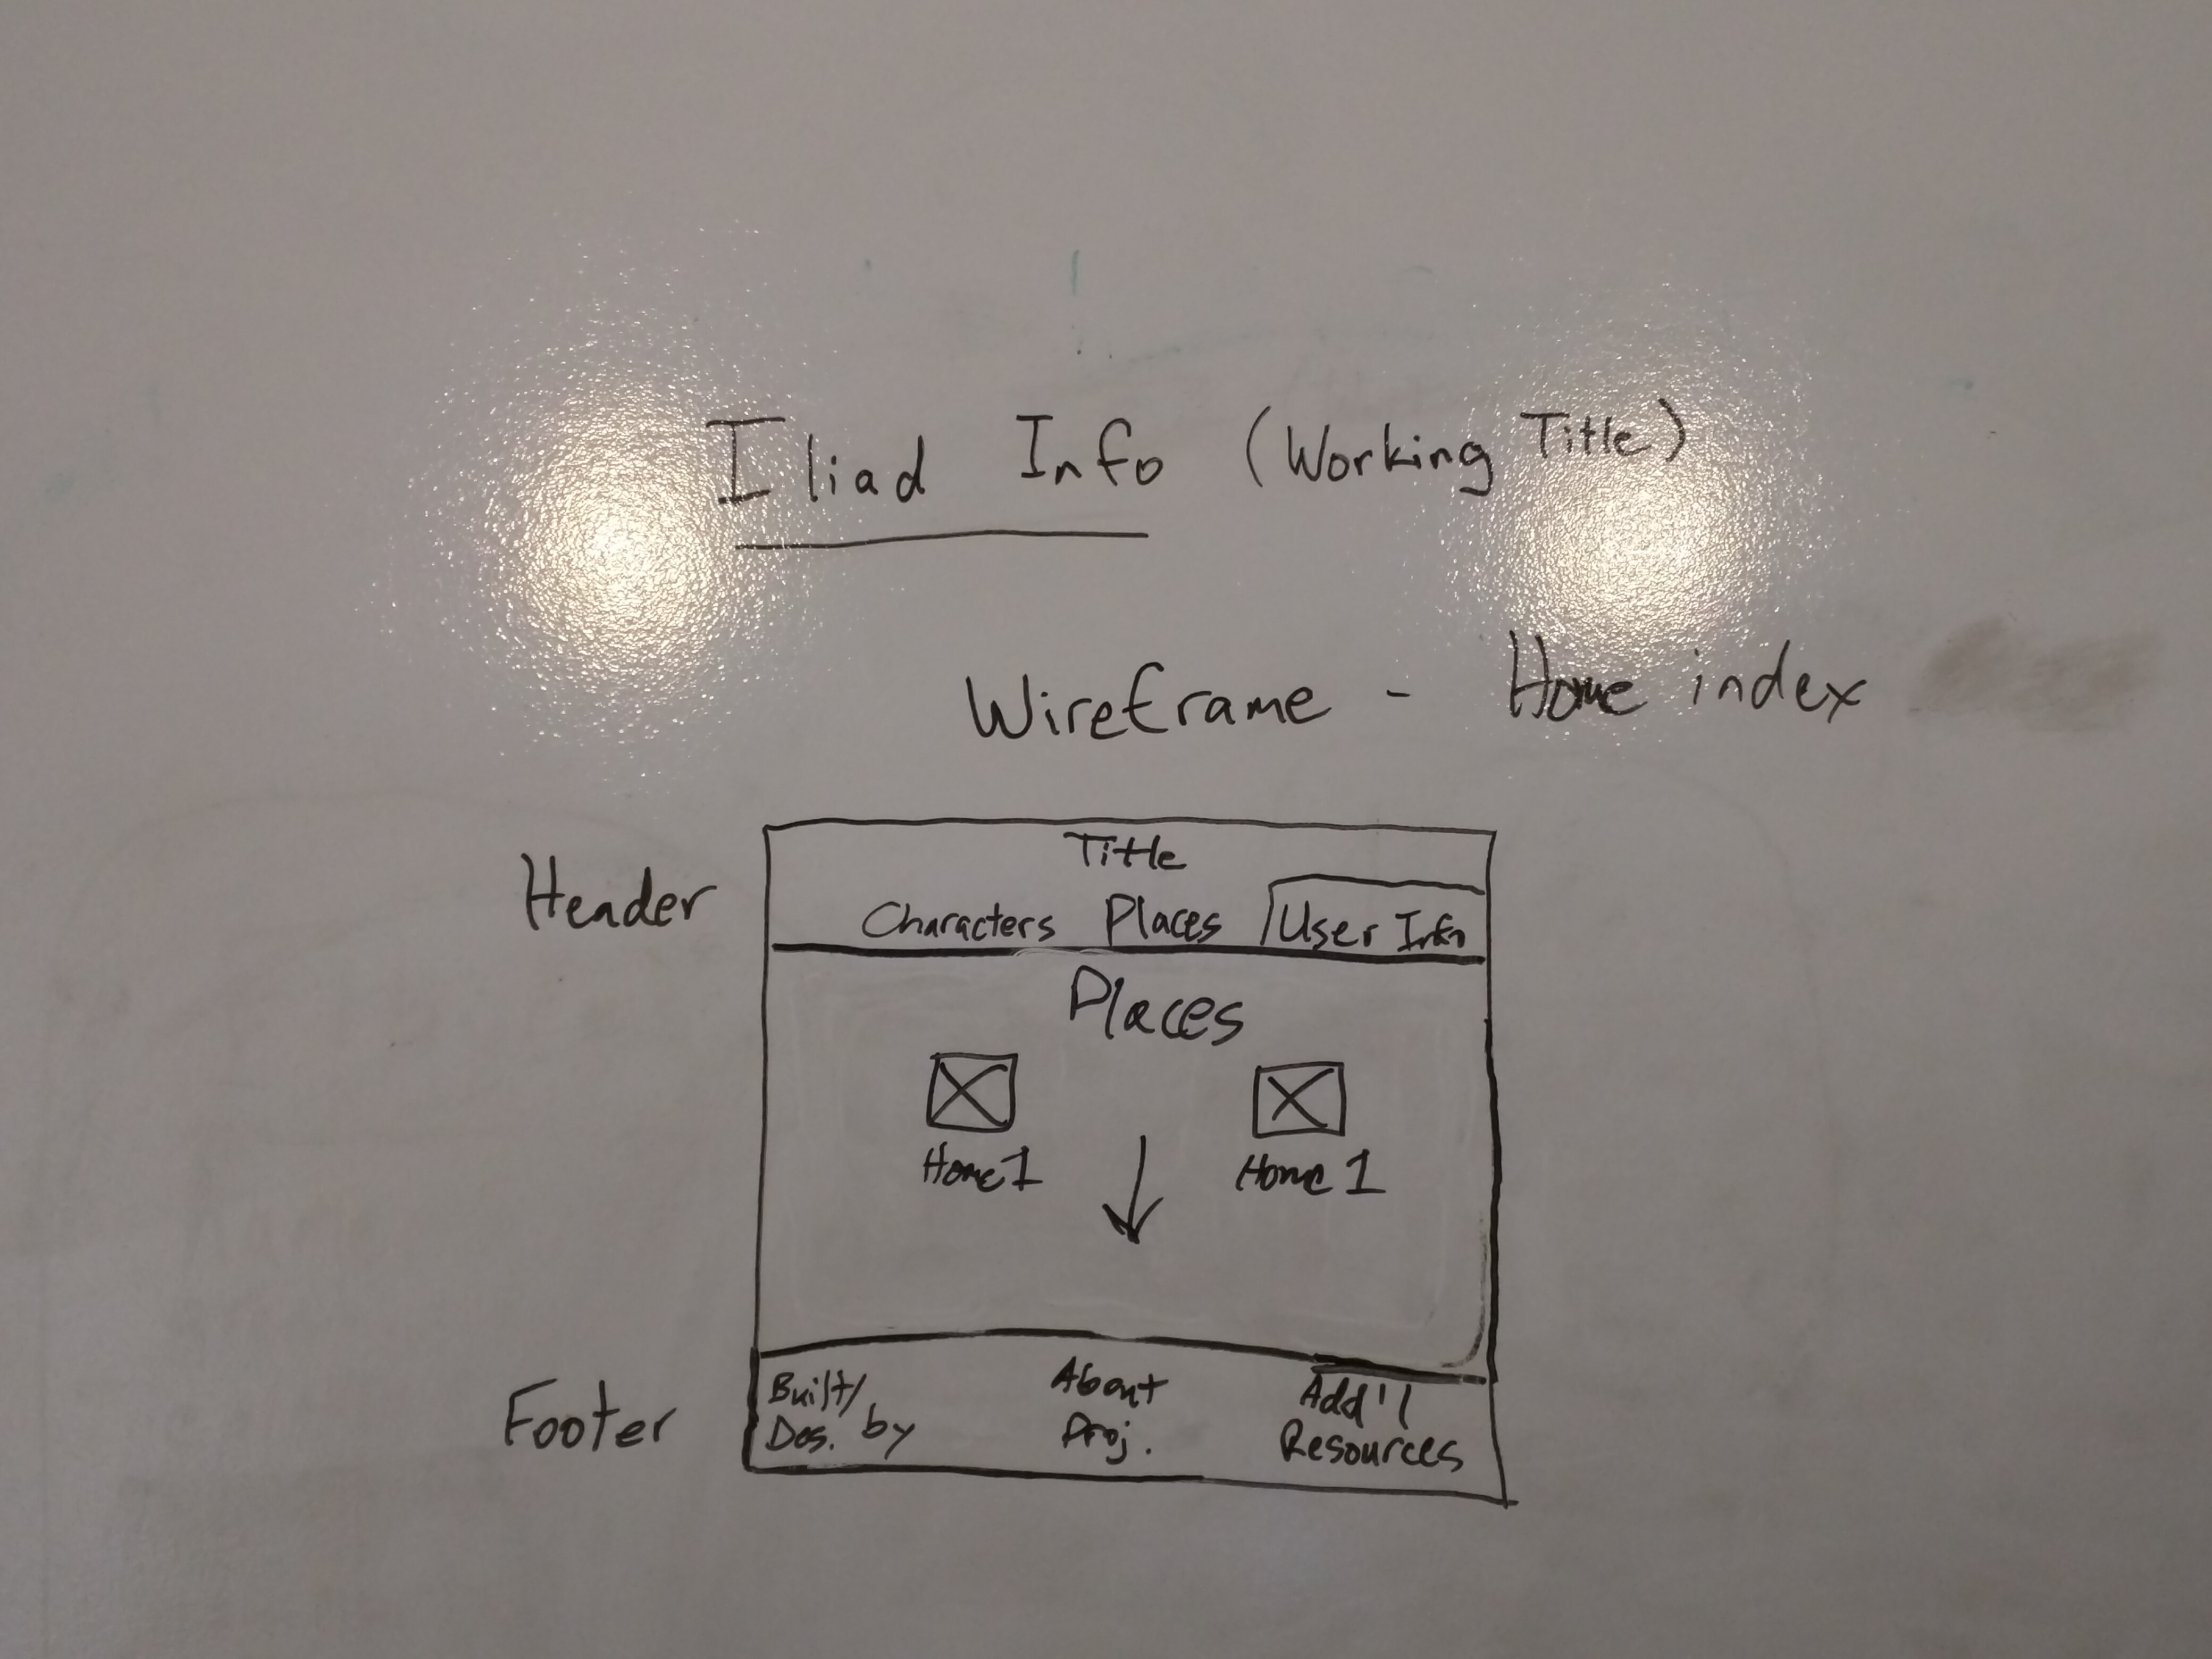 Iliad Info (Working Title)
Wireframe - Home index
Header
Title
Characters Places User Info
Places
Home 1 Home 1
Footer
Built/ Des. by
About Proj.
Add'l Resources